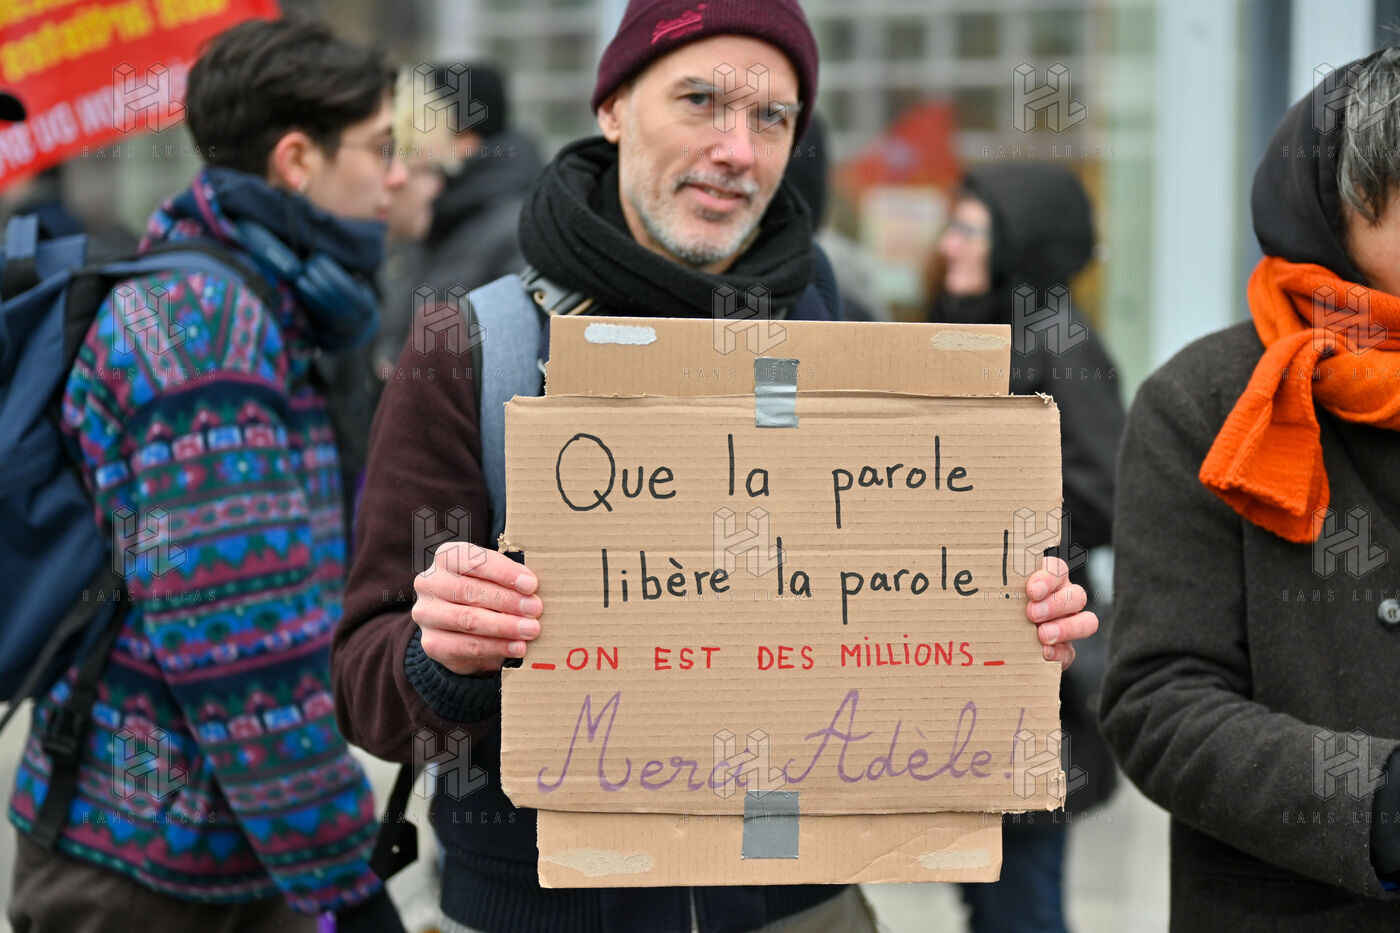 Que la parole
libère la parole !
_ ON EST DES MILLIONS _
Merci Adèle !
HANS LUCAS